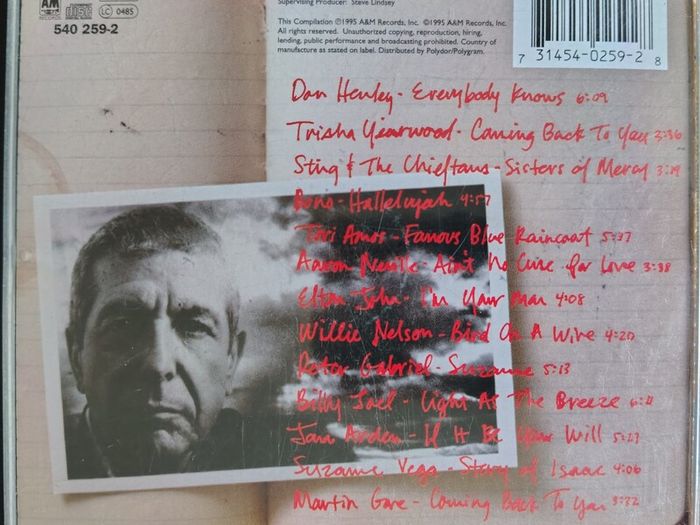 Supervising Producer: Steve Lindsey
AM
RECORDS
disc
LC 0485
540 259-2
This Compilation ℗1995 A&M Records, Inc. ©1995 A&M Records, Inc.
All rights reserved. Unauthorized copying, reproduction, hiring,
lending, public performance and broadcasting prohibited. Country of
manufacture as stated on label. Distributed by Polydor/Polygram.
7 31454-0259-2 8
Don Henley - Everybody Knows 6:09
Trisha Yearwood - Coming Back To You 3:36
Sting & The Chieftans - Sisters of Mercy
Bono - Hallelujah 4:57
Tori Amos - Famous Blue Raincoat 5:37
Aaron Neville - Ain't No Cure for Love 3:38
Elton John - I'm Your Man 4:08
Willie Nelson - Bird On A Wire 4:20
Peter Gabriel - Suzanne 5:13
Billy Joel - Light As The Breeze
Jann Arden - If It Be Your Will 5:27
Suzanne Vega - Story of Isaac 4:06
Martin Gore - Coming Back To You 3:32